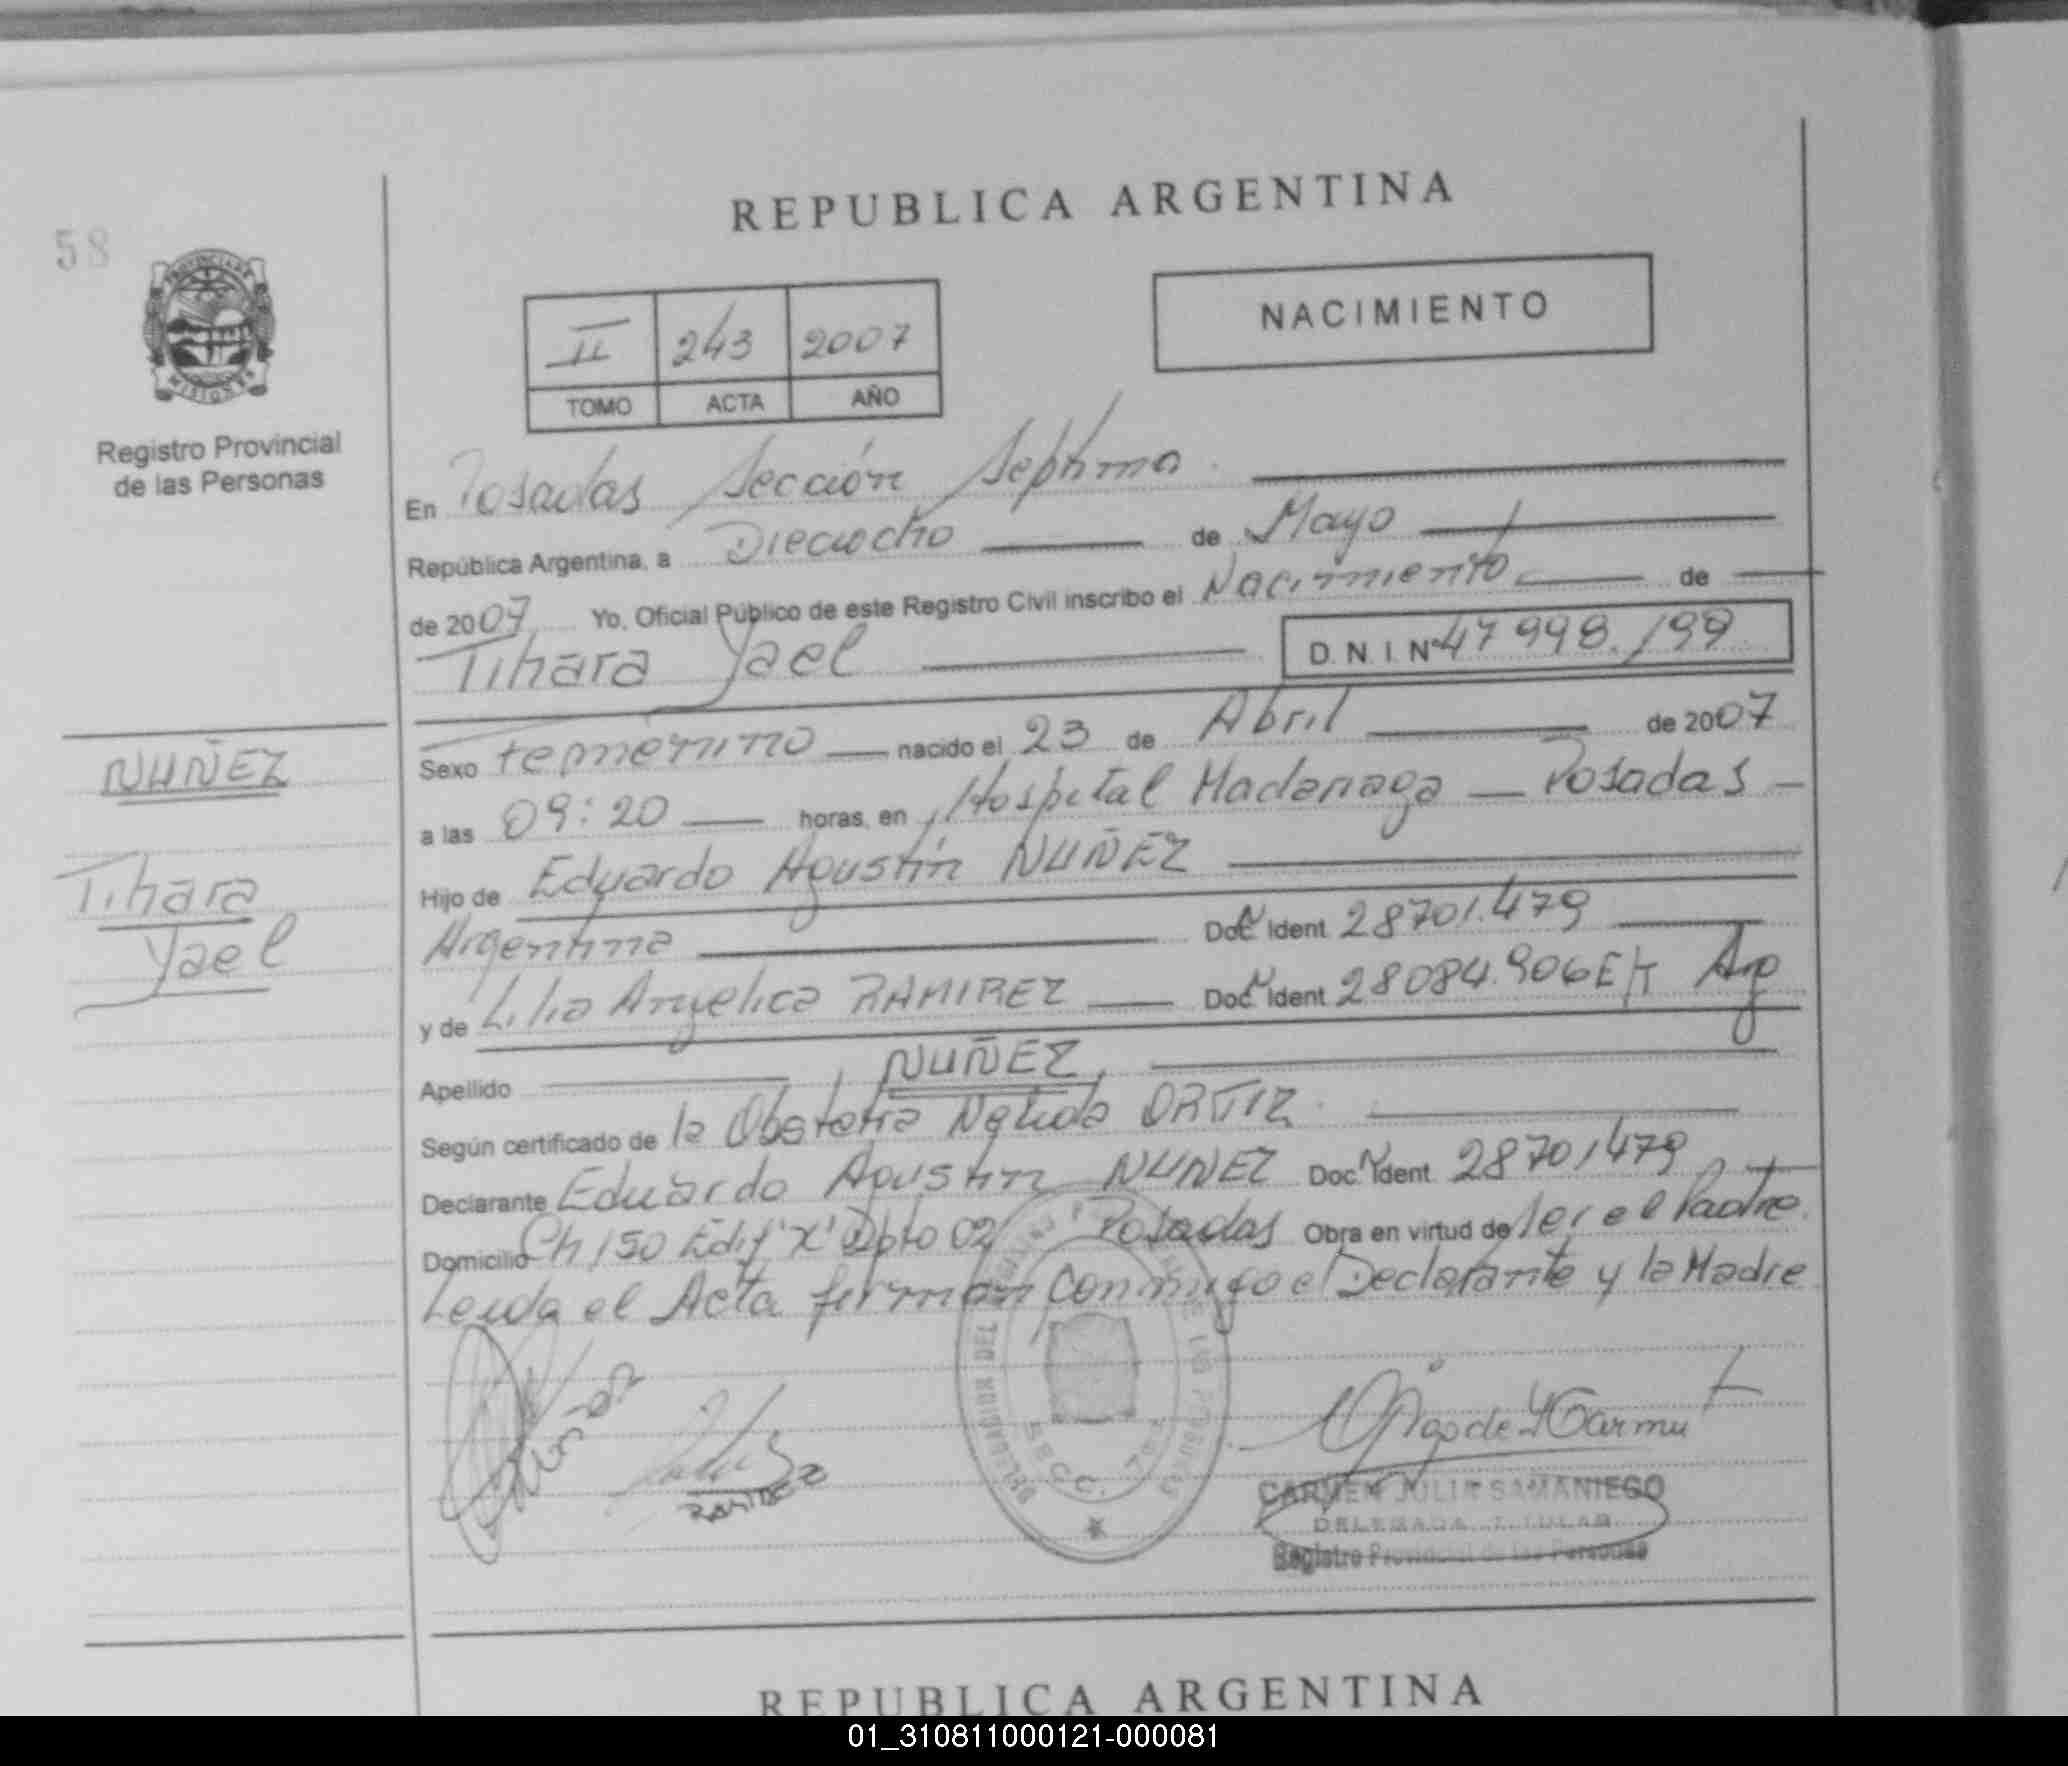 REPUBLICA ARGENTINA
58
PROVINCIA DE
MISIONES
Registro Provincial
de las Personas
II 243 2007
TOMO ACTA AÑO
NACIMIENTO
En Posadas Sección Septima
República Argentina, a Dieciocho de Mayo
de 2007 Yo, Oficial Público de este Registro Civil inscribo el Nacimiento de
Tihara Yael D.N.I. Nº 47 998.199
NUÑEZ
Tihara
Yael
Sexo femenino nacido el 23 de Abril de 2007
a las 09:20 horas, en Hospital Madariaga Posadas
Hijo de Eduardo Agustín NUÑEZ
Argentina Doc Ident 28701.479
y de Lilia Angelica RAMIREZ Doc Ident 28084.906 Arg
Apellido NUÑEZ
Según certificado de la Obstetra Nelida ORTIZ
Declarante Eduardo Agustín NUÑEZ Doc. Ident 28701479
Domicilio Ch 150 Edif 'X' Dpto 02 Posadas Obra en virtud de ser el Padre.
Leida el Acta firman conmigo el Declarante y la Madre
DELEGACION DEL REGISTRO PROVINCIAL DE LAS PERSONAS
SECC. 7ª
RAMIREZ
CARMEN JULIA SAMANIEGO
DELEGADA TITULAR
Registro Provincial de las Personas
REPUBLICA ARGENTINA
01_310811000121-000081